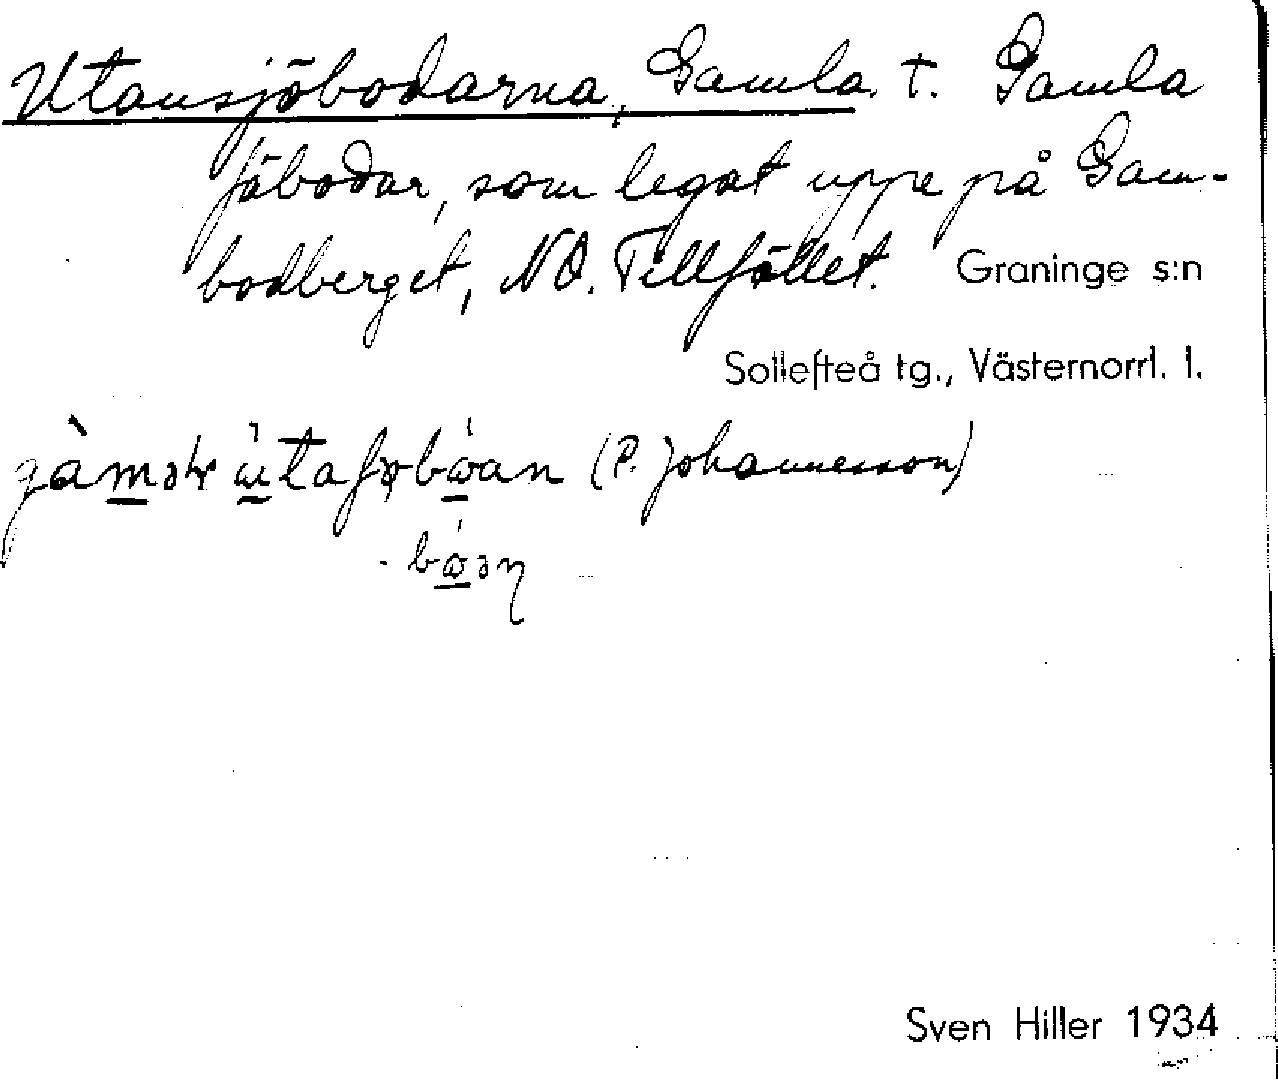 Utansjöbodarna, Gamla. t. Gamla
fäbodar, som legat uppe på Gam-
bodberget, NO. Tillfället.
Graninge s:n
Sollefteå tg., Västernorrl. l.
(P. Johannesson)
Sven Hiller 1934